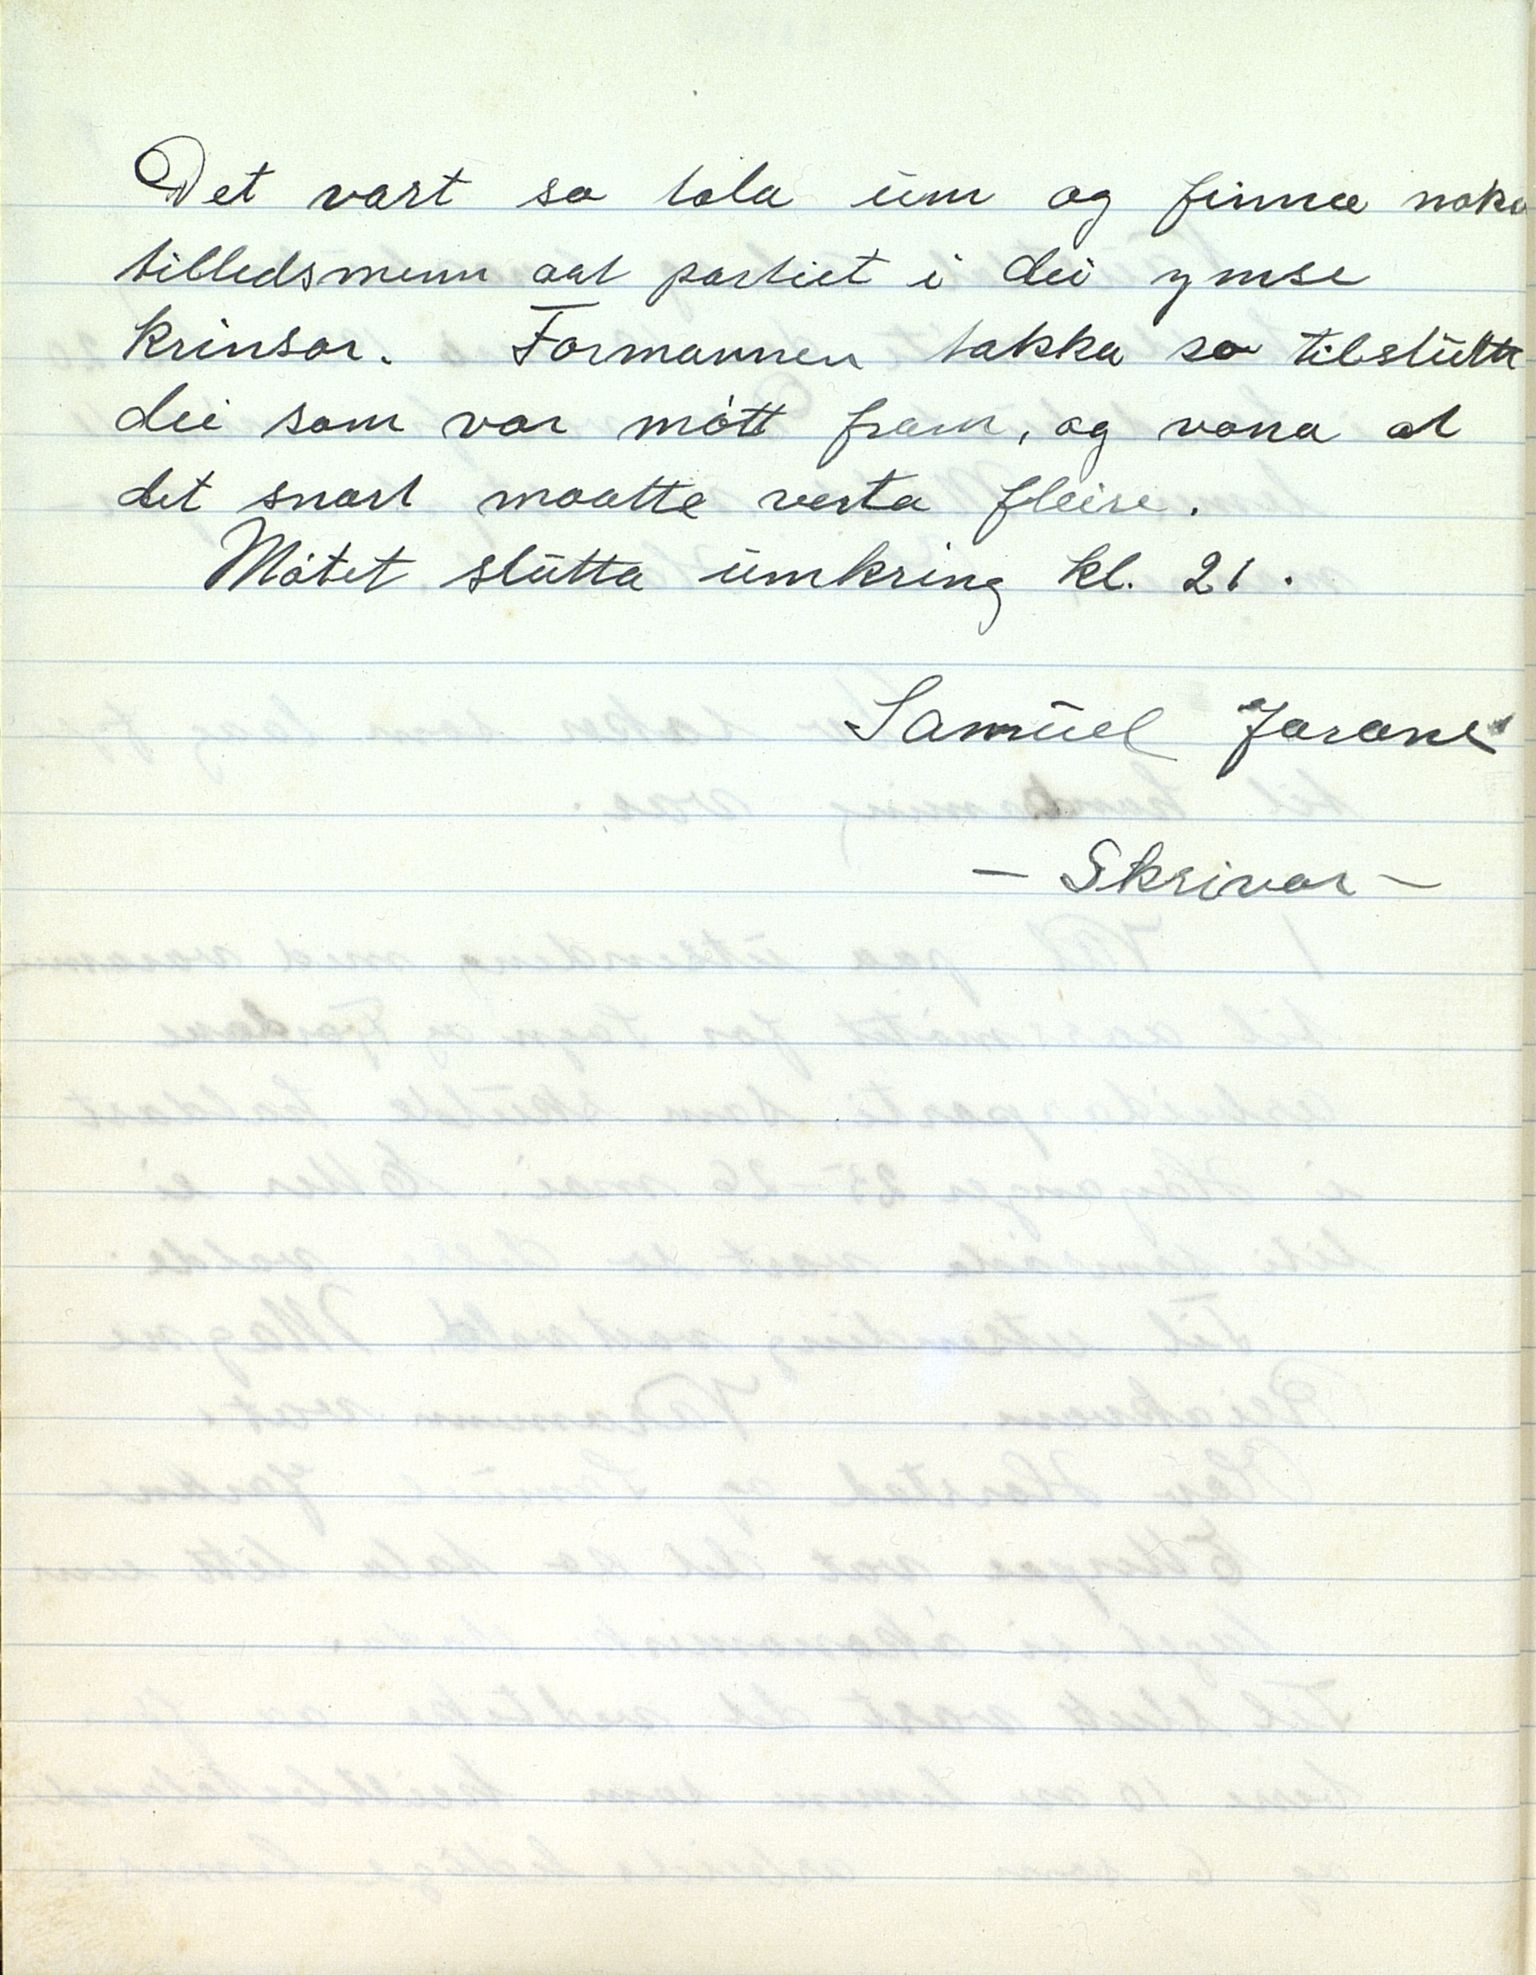 Det vart so tala um og finna noko
tilledsmenn aat partiet i dei ymse
krinsar. Formannen takka so tilslutta
dei som var møtt fram, og vona at
det snart maatte verta fleire.
Møtet slutta umkring kl. 21.
Samuel Jarane
- Skrivar -